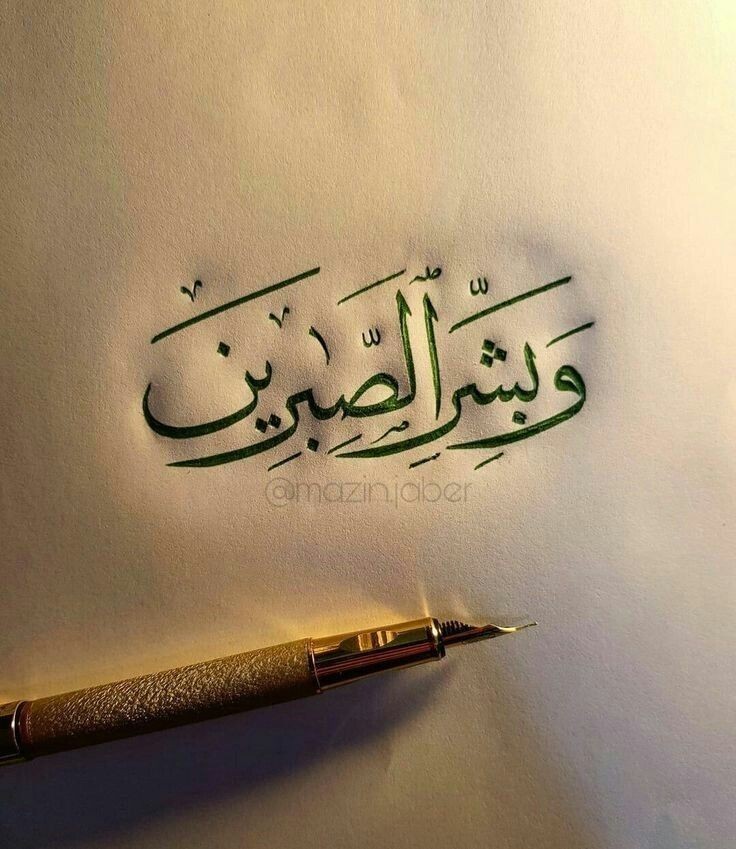 وَبَشِّرِ ٱلصَّـٰبِرِينَ
@mazin.jaber